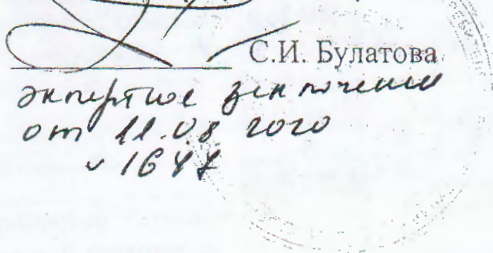 С.И. Булатова
экспертное заключение
от 11.08 2020